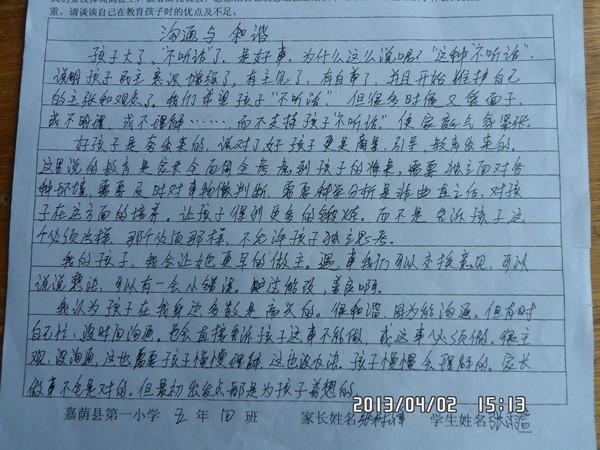 重。请谈谈自己在教育孩子时的优点及不足。
沟通与和谐
孩子大了，“不听话”了，是好事，为什么这么说呢？“这种‘不听话’”
说明孩子自主意识增强了，有主见了，有自尊了，并且开始维护自己
的主张和观点了，我们希望孩子“不听话”。但很多时候又爱面子，
或不明理，或不理解……而不支持孩子“不听话”。使家庭气氛紧张。
好孩子是夸出来的，说对了，好孩子更是商量、引导、教育出来的。
这里说的教育是家长全面周全考虑到孩子的将来，需要独立面对各
种环境，需要及时对事物做判断，需要科学分析是非曲直之后，对孩
子在这方面的培养。让孩子得到更多的锻炼。而不是告诉孩子这
个必须怎样，那个必须那样，不允许孩子独立思考。
我的孩子，我会让她更早的做主。遇事我们可以交换意见，可以
说说想法，可以有一些小错误。
我认为孩子在我身边多数是高兴的。很和谐，因为能沟通。但有时
自己忙，没时间沟通。也会直接告诉孩子这事不能做，或这事必须做。很主
观，没沟通，这也需要孩子慢慢理解，这也没办法。孩子慢慢会理解的。家长
做事不全是对的。但最初出发点都是为孩子着想的。
2013/04/02 15:13
嘉荫县第一小学 五 年 四 班 家长姓名 学生姓名